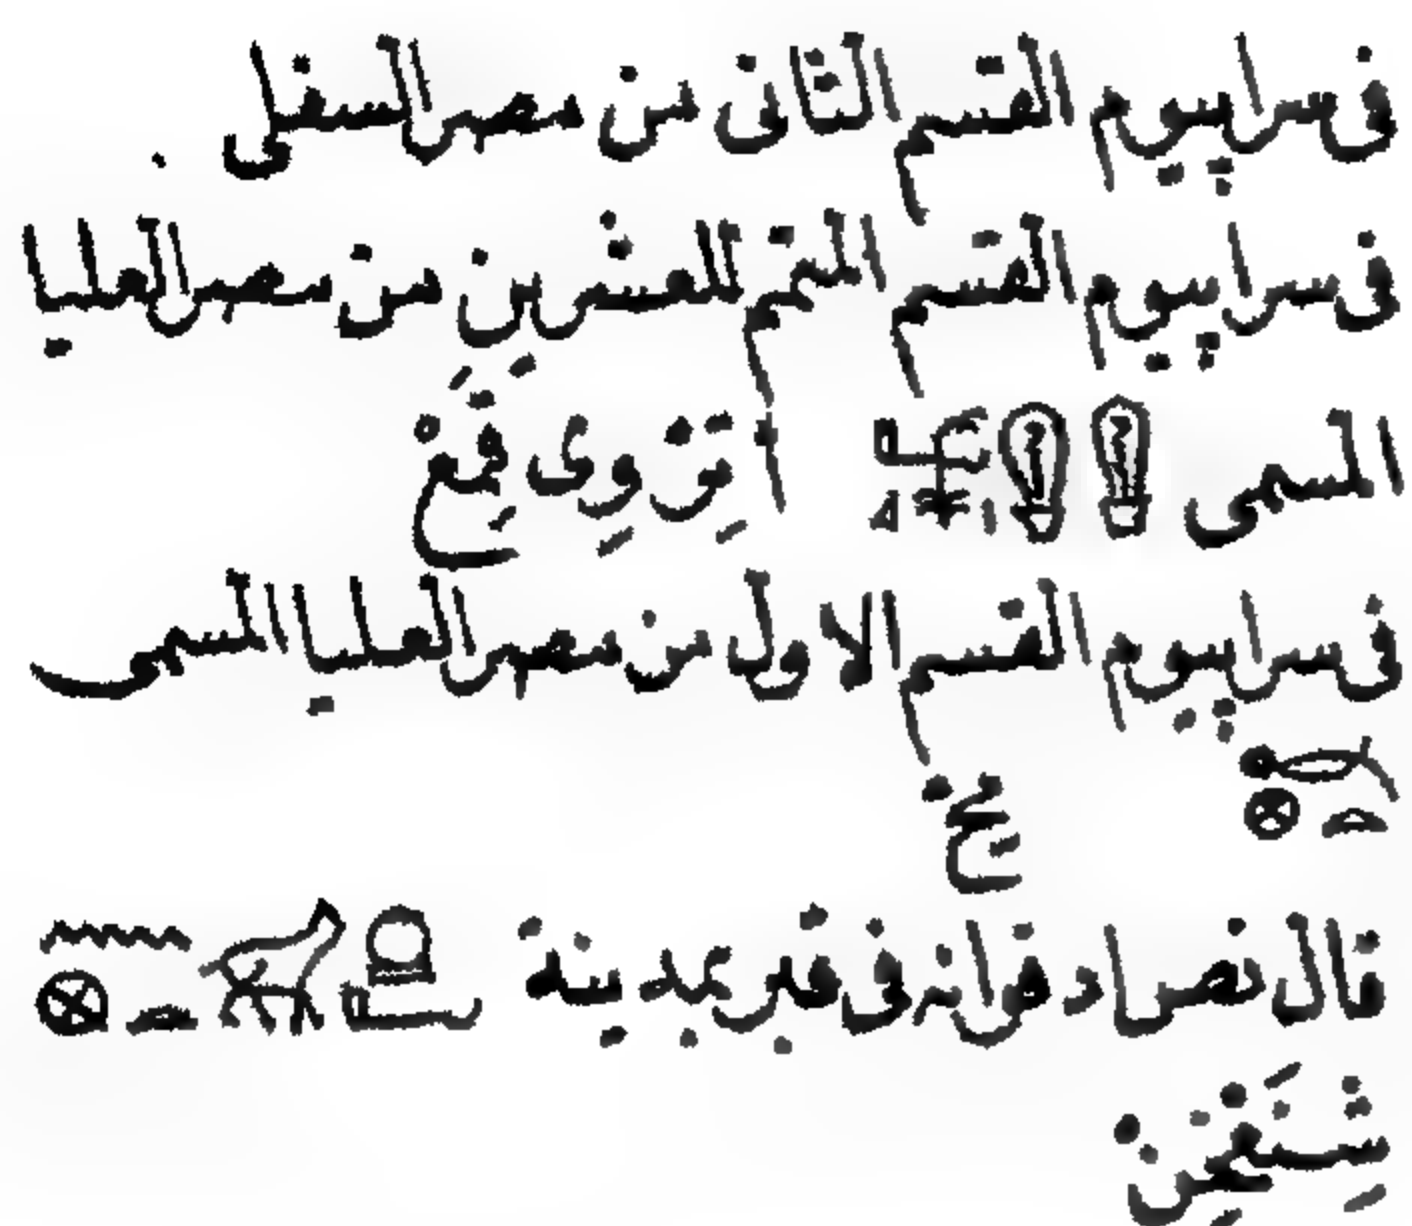 فى سراپيوم القسم الثانى من مصر السفلى .
فى سراپيوم القسم المتمم للعشرين من مصر العليا
المسمى
فى سراپيوم القسم الاول من مصر العليا المسمى
قال نصر اد فوانه فى قبر بمدينة